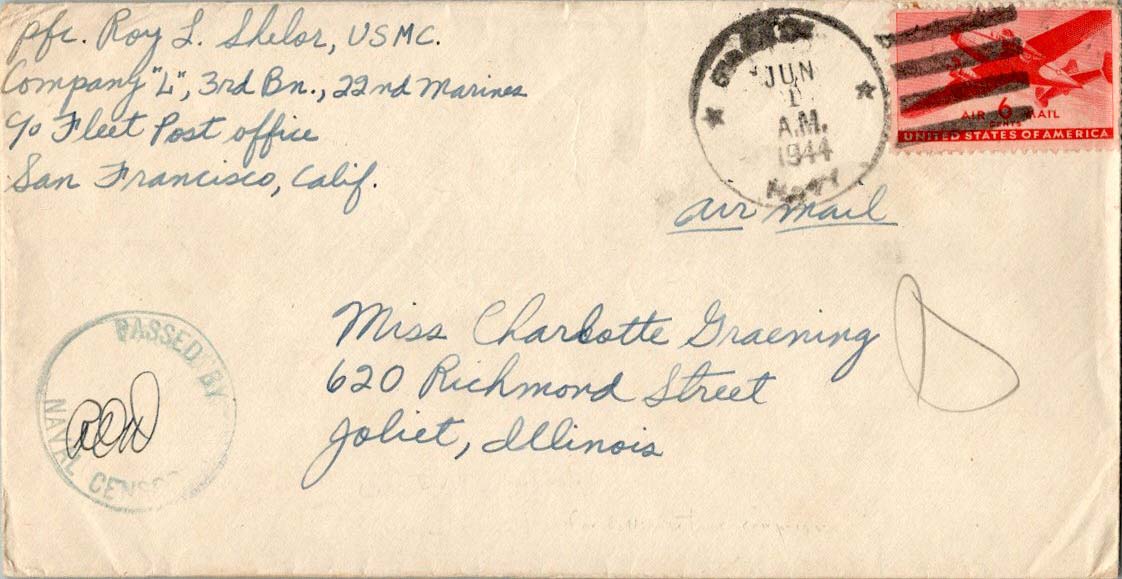 Pfc. Roy L. Shelor, USMC.
Company "L", 3rd Bn., 22nd Marines
c/o Fleet Post office
San Francisco, Calif.
JUN
1
A.M.
1944
AIR 6 MAIL
CENTS
UNITED STATES OF AMERICA
air mail
Miss Charlotte Graening
620 Richmond Street
Joliet, Illinois
PASSED BY
NAVAL CENSOR